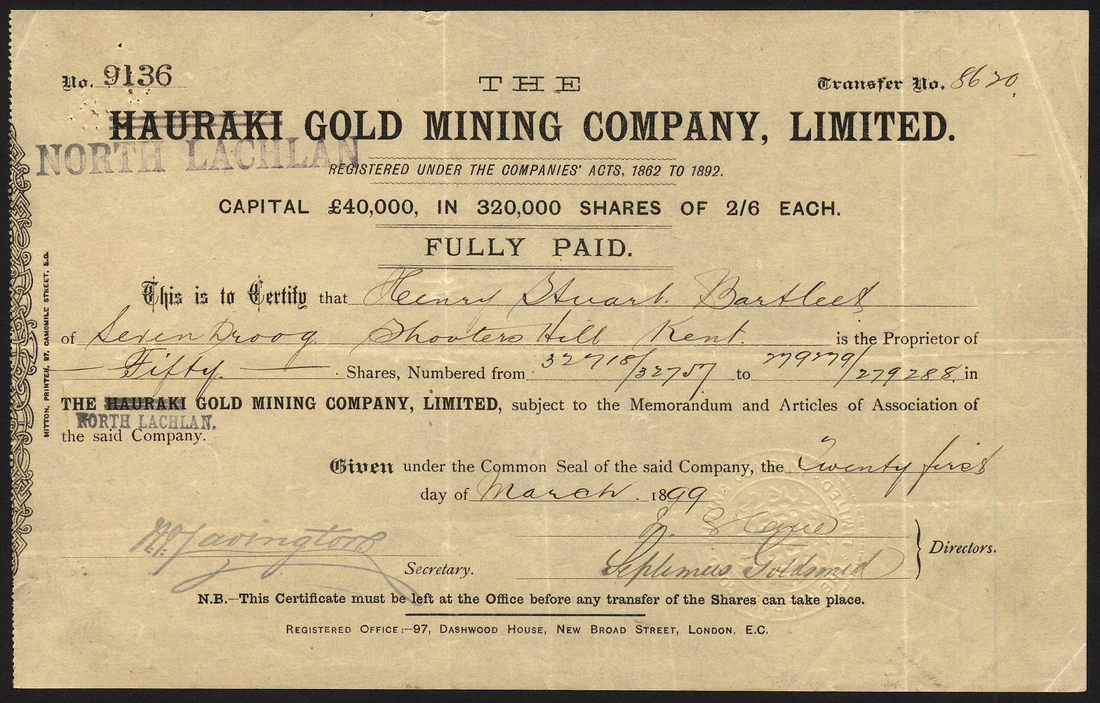 No. 9136 THE Transfer No. 8620
HAURAKI GOLD MINING COMPANY, LIMITED.
NORTH LACHLAN
REGISTERED UNDER THE COMPANIES' ACTS, 1862 TO 1892.
CAPITAL £40,000, IN 320,000 SHARES OF 2/6 EACH.
FULLY PAID.
This is to Certify that Henry Stuart Bartleet
of Seven Droog Shooters Hill Kent. is the Proprietor of
Fifty. Shares, Numbered from 32718/32757 to 279279/279288. in
THE HAURAKI GOLD MINING COMPANY, LIMITED, subject to the Memorandum and Articles of Association of
NORTH LACHLAN.
the said Company.
Given under the Common Seal of the said Company, the Twenty first
day of March. 1899
Septimus Goldsmid
Directors.
Secretary.
N.B.—This Certificate must be left at the Office before any transfer of the Shares can take place.
REGISTERED OFFICE:—97, DASHWOOD HOUSE, NEW BROAD STREET, LONDON. E.C.
MITTON, PRINTER, 27, CAMOMILE STREET, E.C.